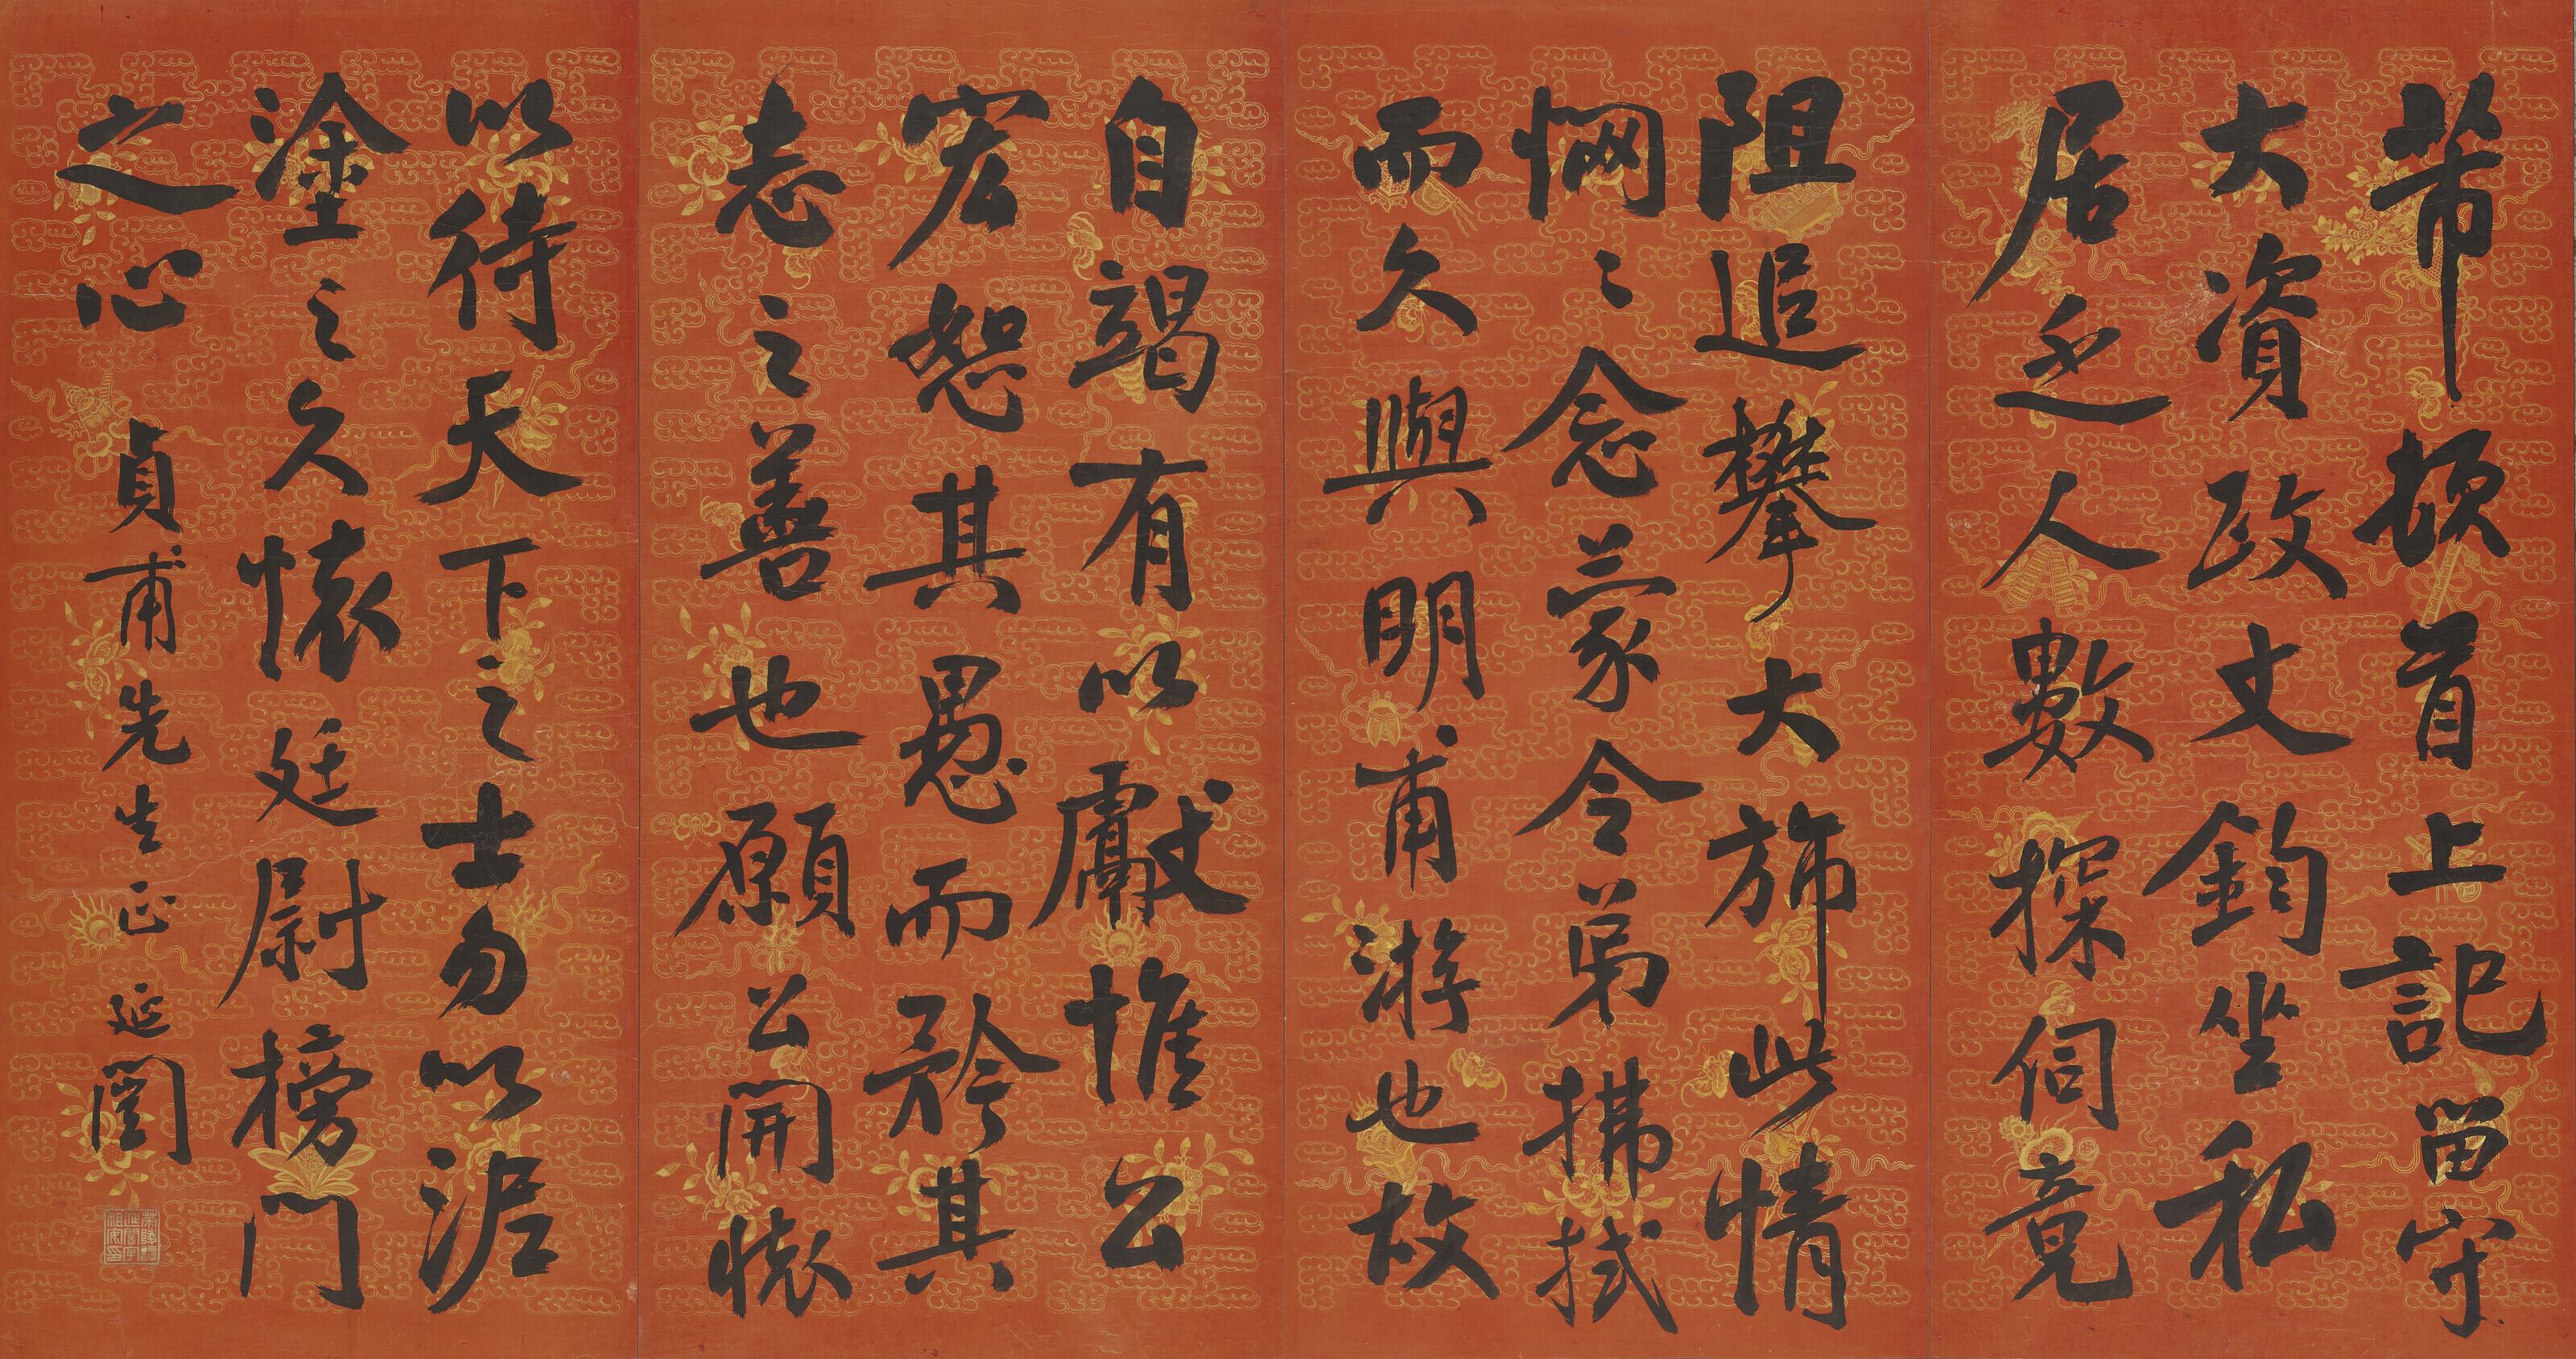 芾頓首上記留守
大資政丈鈞坐私
居乏人數探伺竟
阻追攀大旆此情
惘〻念蒙令弟拂拭
而久與明甫游也故
自竭有以獻惟公
宏恕其愚而矜其
志之善也願公開懷
以待天下之士勿以泥
塗之久懷廷尉榜門
之心
貞甫先生正 延闓
茶陵譚延闓字祖安印